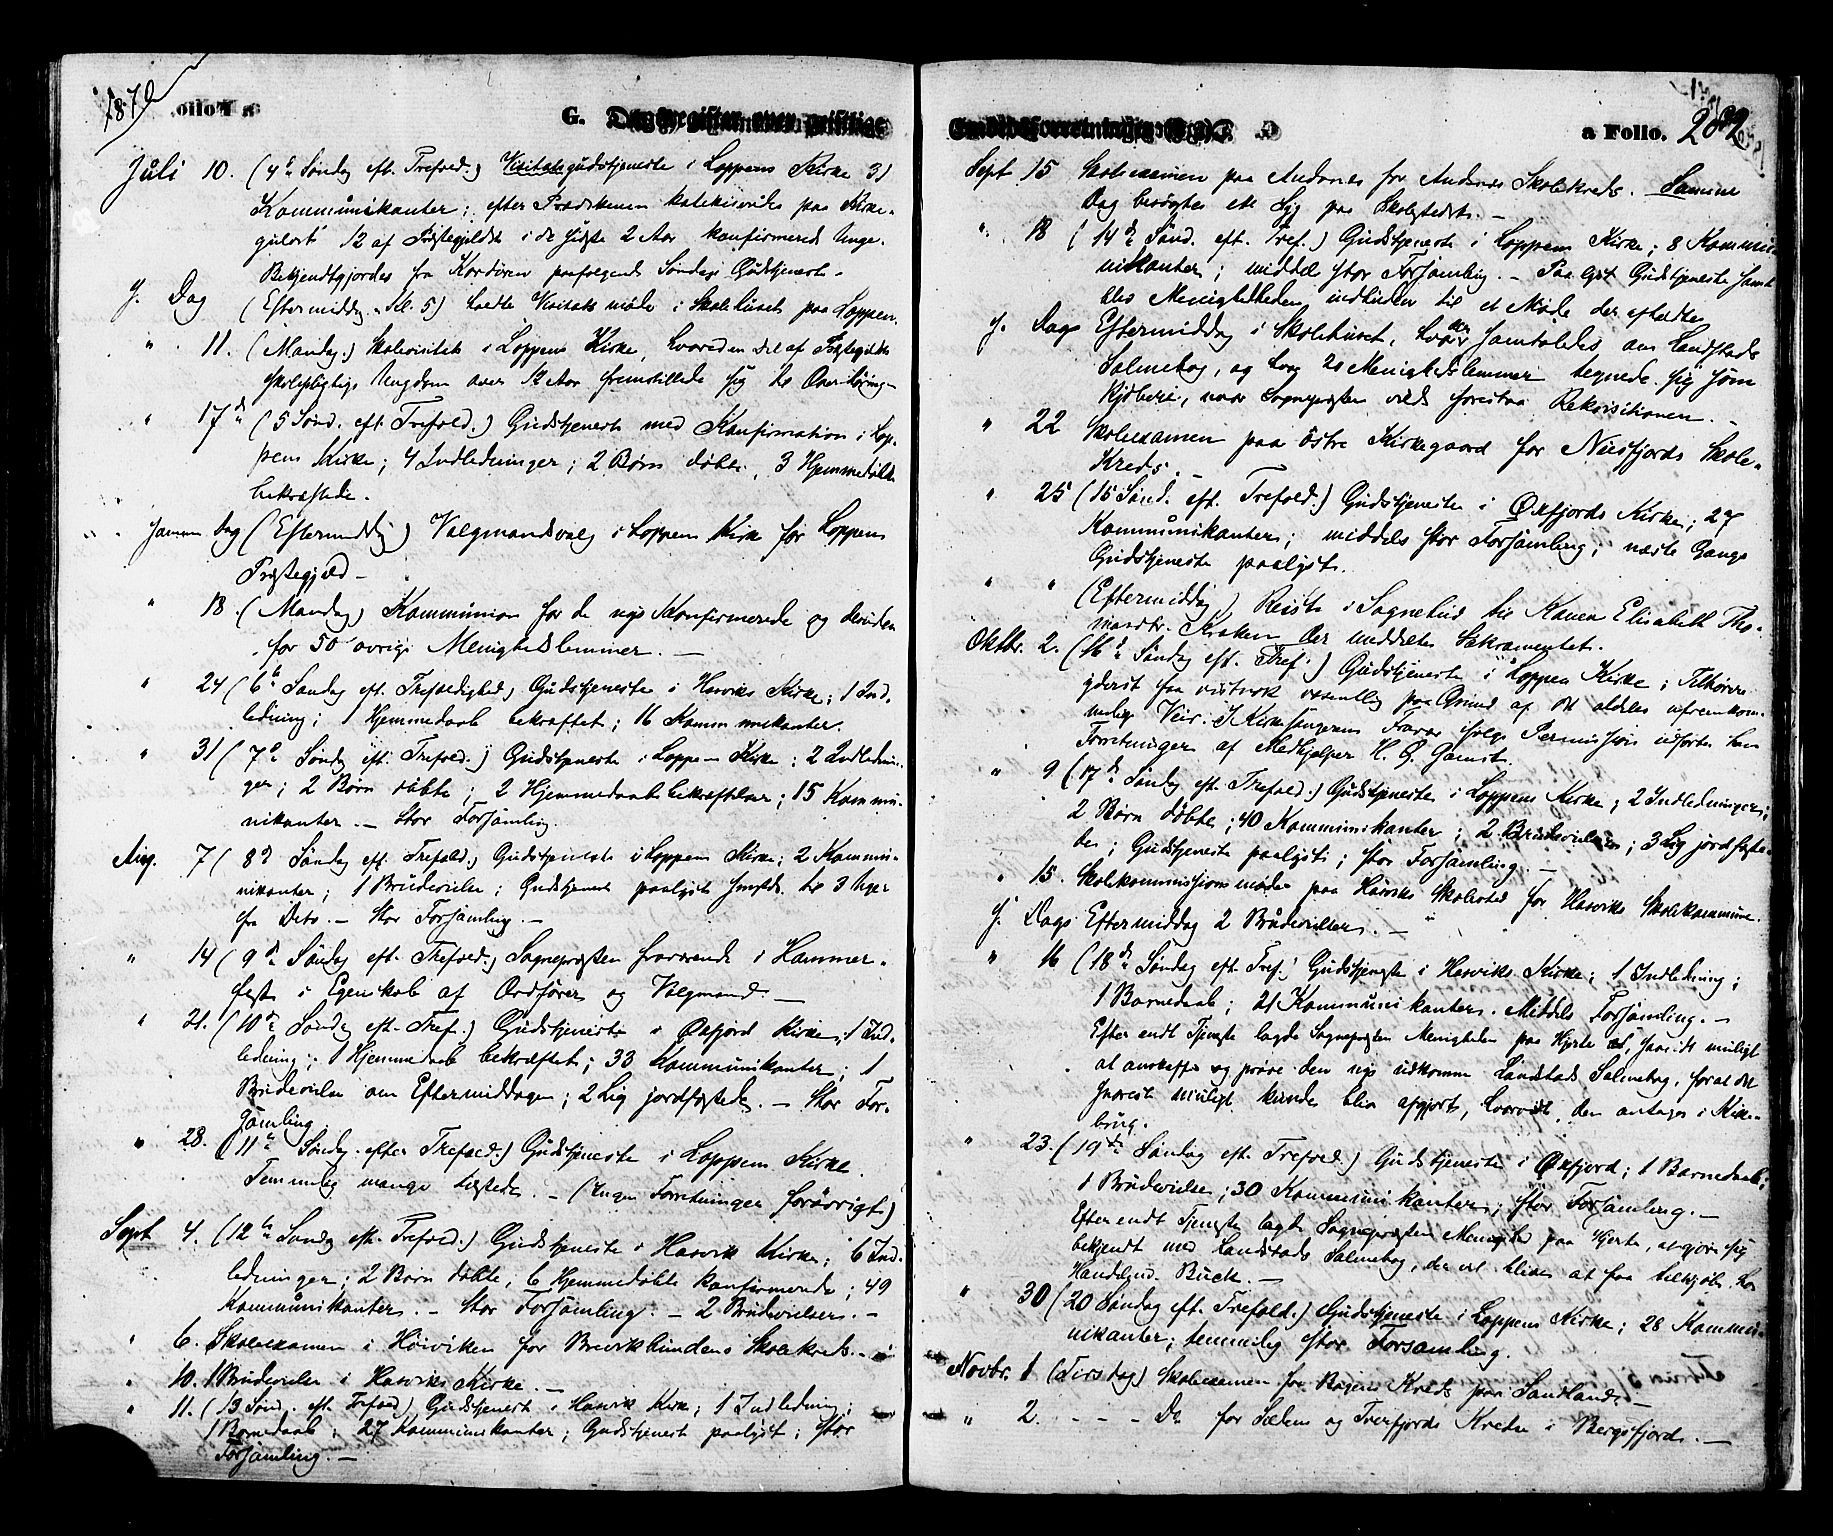 1870
G. Dagregister over geistlige
Juli 10. (4de Søndag eft. Trefold.) Visitatsgudstjeneste i Loppens Kirke 31
Kommunikanter; efter Prædikenen katekiseredes paa Kirke-
gulvet 12 af Præstegjeldets i de sidste 2 Aar konfirmerede Unge.
Bekjendtgjordes fra Kordøren paafølgende Søndags Gudstjeneste.
s. Dag (Eftermiddag Kl. 5) holdtes Visitatsmøde i Skolehuset paa Loppen.
" 11. (Mandag.) Skolevisitats i Loppens Kirke, hvorved en Del af Præstegjeldets
skolepligtige Ungdom over 12 Aar fremstillede sig til Overhøring.
" 17de (5 Sønd. eft. Trefold.) Gudstjeneste med Konfirmation i Lop-
pens Kirke; 4 Indledninger; 2 Børn døbte, 3 Hjemmedøbte
bekræftede.
Samme Dag (Eftermiddag) Valgmandsvalg i Loppens Kirke for Loppens
Præstegjæld.
" 18. (Mandag) Kommunion for de nys Konfirmerede og desuden
for 50 øvrige Menighedslemmer.
" 24 (6te Søndag eft. Trefoldighed) Gudstjeneste i Hasviks Kirke; 1 Ind-
ledning; 1 Hjemmedaab bekræftet; 16 Kommunikanter.
" 31 (7de Søndag eft. Trefold.) Gudstjeneste i Loppens Kirke; 2 Indlednin-
ger; 2 Børn døbte; 2 Hjemmedaab bekræftede; 15 Kommu-
nikanter. – Stor Forsamling.
Aug. 7 (8de Søndag eft. Trefold.) Gudstjeneste i Loppens Kirke; 2 Kommu-
nikanter; 1 Brudevielse; Gudstjeneste paalyst til 3 Uger
fra Dato. – Stor Forsamling. –
" 14 (9de Søndag eft. Trefold.) Sognepræsten fraværende i Hammer-
fest i Egenskab af Ordfører og Valgmand. –
" 21. (10de Søndag eft. Tref.) Gudstjeneste i Øxfjord Kirke, 1 Ind-
ledning; 1 Hjemmedaab bekræftet; 33 Kommunikanter; 1
Brudevielse om Eftermiddagen; 2 Lig jordfæstede. – Stor For-
samling
" 28. (11te Søndag efter Trefold.) Gudstjeneste i Loppens Kirke
Temmelig mange tilstede. – (Ingen Forretninger forøvrigt)
Sept 4. (12te Søndag eft. Trefold.) Gudstjeneste i Hasvik Kirke; 6 Ind-
ledninger; 2 Børn døbte, 6 Hjemmedøbte konfirmerede; 49
Kommunikanter. – Stor Forsamling. – 2 Brudevielser. –
" 6. Skolexamen i Høiviken for Breviksbundens Skolekreds. –
" 10. 1 Brudevielse i Hasviks Kirke. –
" 11. (13 Sønd. eft. Trefold) Gudstjeneste i Hasvik Kirke; 1 Indledning;
1 Barnedaab; 27 Kommunikanter; Gudstjeneste paalyst; Stor
Forsamling. –
a Folio. 282
Sept 15 Skolexamen paa Andsnes for Andsnes Skolekreds. Samme
Dag besøgtes en Syg paa Skolestedet. –
" 18 (14de Sønd. eft. Tref.) Gudstjeneste i Loppens Kirke; 8 Kommu-
nikanter; middels stor Forsamling. – Paalyst Gudstjeneste samt
blev Menigheden indbuden til et Møde der afholdtes
s. Dags Eftermiddag i Skolehuset, hvor der samtaledes om Landstads
Salmebog, og hvor 20 Menighedslemmer tegnede sig som
Kjøbere, naar Sognepræsten vilde forestaa Rekvisitionen. –
" 22 Skolexamen paa østre Kirkegaard for Nusfjords Skole-
Kreds. –
" 25 (15 Sønd. eft. Trefold.) Gudstjeneste i Øxfjords Kirke; 27
Kommunikanter; middels stor Forsamling; næste Gangs
Gudstjeneste paalyst.
" " (Eftermiddag) Reiste i Sognebud til Konen Elisabeth Tho-
masdtr. Kraken der meddeltes Sakramentet.
Oktbr. 2. (16de Søndag eft. Tref.) Gudstjeneste i Loppen Kirke; Tilhørere
yderst faa væsentlig paa Grund af det aldeles ufremkom-
melige Veir. I Kirkesangerens Fravær ifølge Permission udførtes hans
Forretninger af Medhjælper H. G. Gamst.
" 9 (17de Søndag eft. Trefold.) Gudstjeneste i Loppens Kirke; 2 Indledninger;
2 Børn døbte; 40 Kommunikanter; 2 Brudevielser; 3 Lig jordfæste-
des; Gudstjeneste paalyst; stor Forsamling. –
" 15. Skolekommissionsmøde paa Hasviks Skolested for Hasviks Skolekommune.
s. Dags Eftermiddag 2 Brudevielser. –
" 16 (18de Søndag eft. Tref.) Gudstjeneste i Hasviks Kirke; 1 Indledning;
1 Barnedaab; 21 Kommunikanter. Middels Forsamling. –
Efter endt Tjeneste lagde Sognepræsten Menigheden paa Hjerte at, saavidt muligt
at anskaffe og prøve den nys udkomne Landstads Salmebog, forat det
snarest muligt kunde blive afgjort, hvorvidt den antages i Kirke-
brug.
" 23. (19de Søndag eft. Trefold.) Gudstjeneste i Øxfjord; 1 Barnedaab;
1 Brudevielse; 30 Kommunikanter; stor Forsamling. –
Efter endt Tjeneste lagde Sognepræsten Menighed paa Hjerte, at gjøre sig
bekjendt med Landstads Salmebog, der vil blive at faa tilkjøbs hos
Handelsm. Buck. –
" 30 (20 Søndag eft. Trefold.) Gudstjeneste i Loppens Kirke; 28 Kommu-
nikanter; temmelig stor Forsamling.
Novbr. 1 (Tirsdag) Skolexamen for Bogens Kreds paa Sandland. –
" 2. - - - Do for Sælen og Tverfjords Kredse i Bergsfjord. –